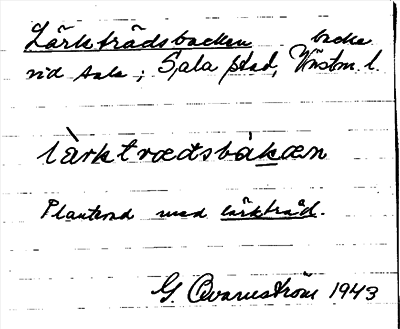 Lärkträdsbacken backe
vid Sala; Sala stad, Västm. l.
làrktrædsbàkæn
Planterad med lärkträd.
G. Qvarnström 1943